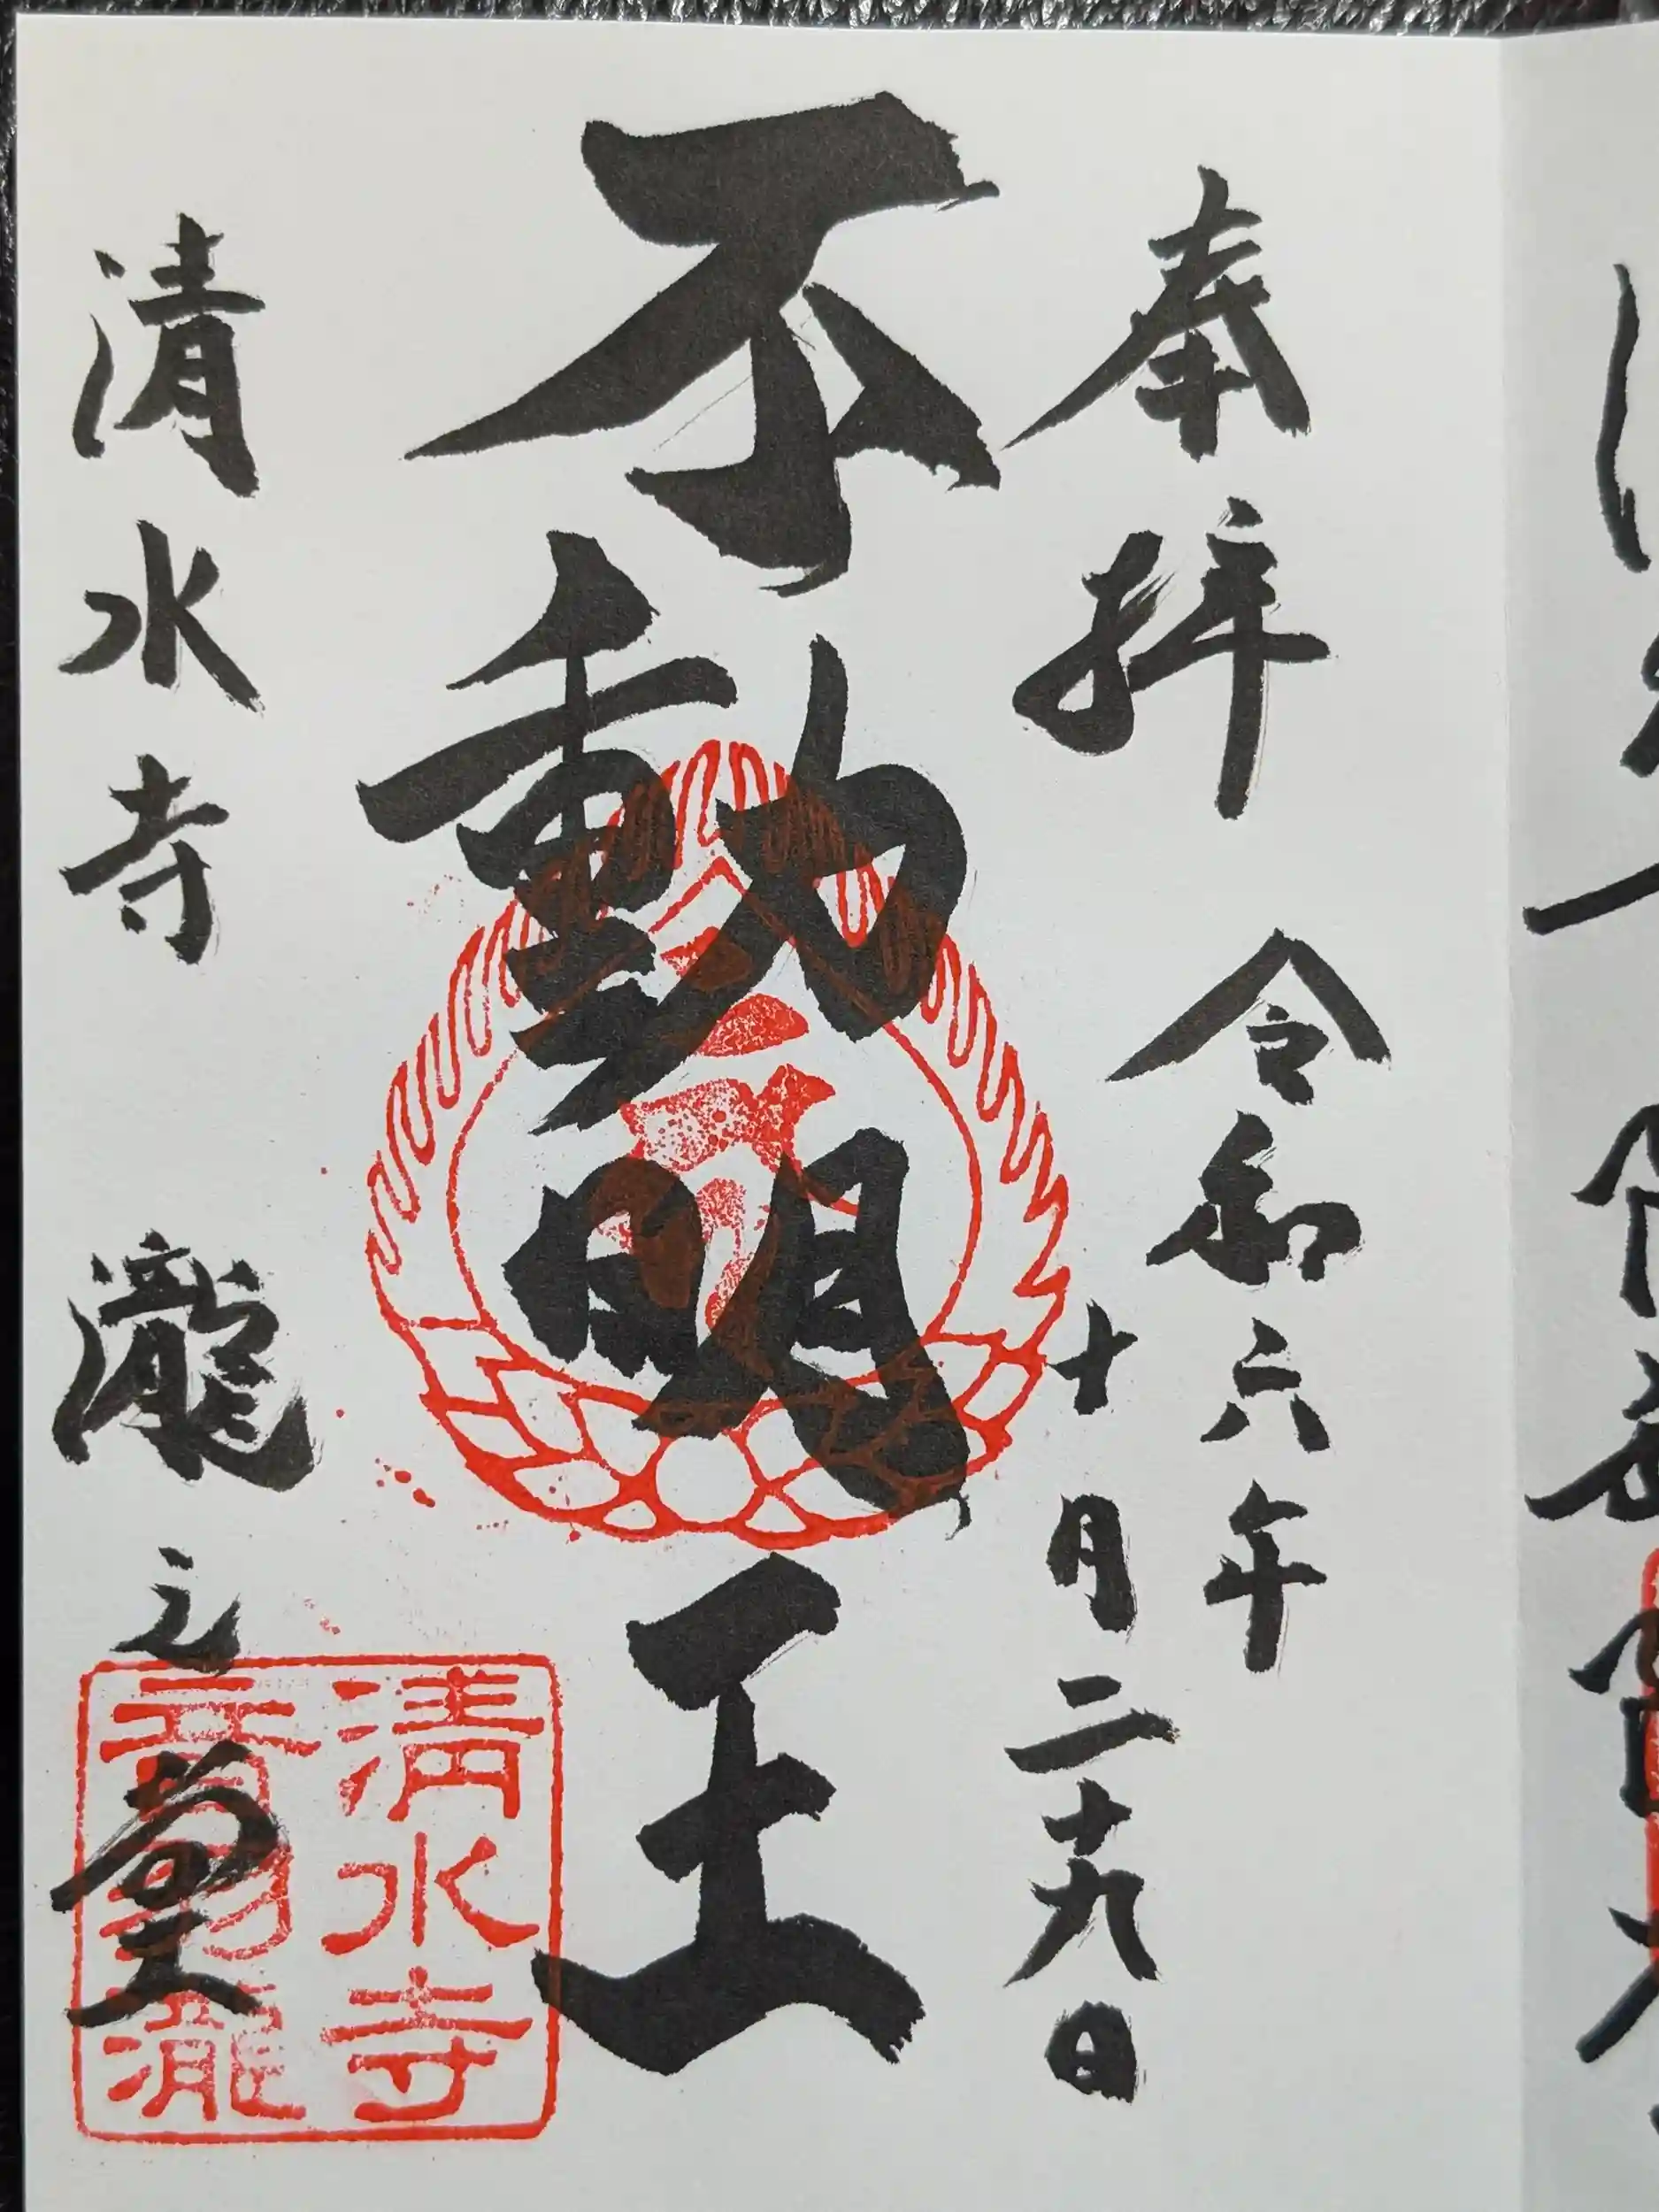 奉拝
令和六年
十月二十九日
不動明王
清水寺 瀧之堂
清水寺
音羽瀧